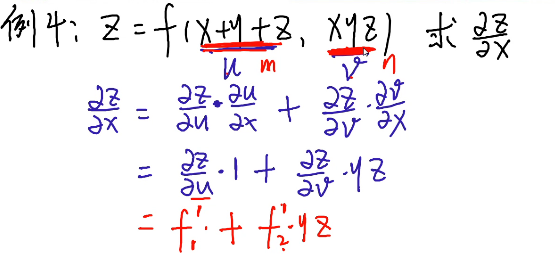 例4: z = f(x+y+z, xyz) 求 ∂z/∂x
u m v n
∂z/∂x = ∂z/∂u · ∂u/∂x + ∂z/∂v · ∂v/∂x
= ∂z/∂u · 1 + ∂z/∂v · yz
= f₁' + f₂' · yz